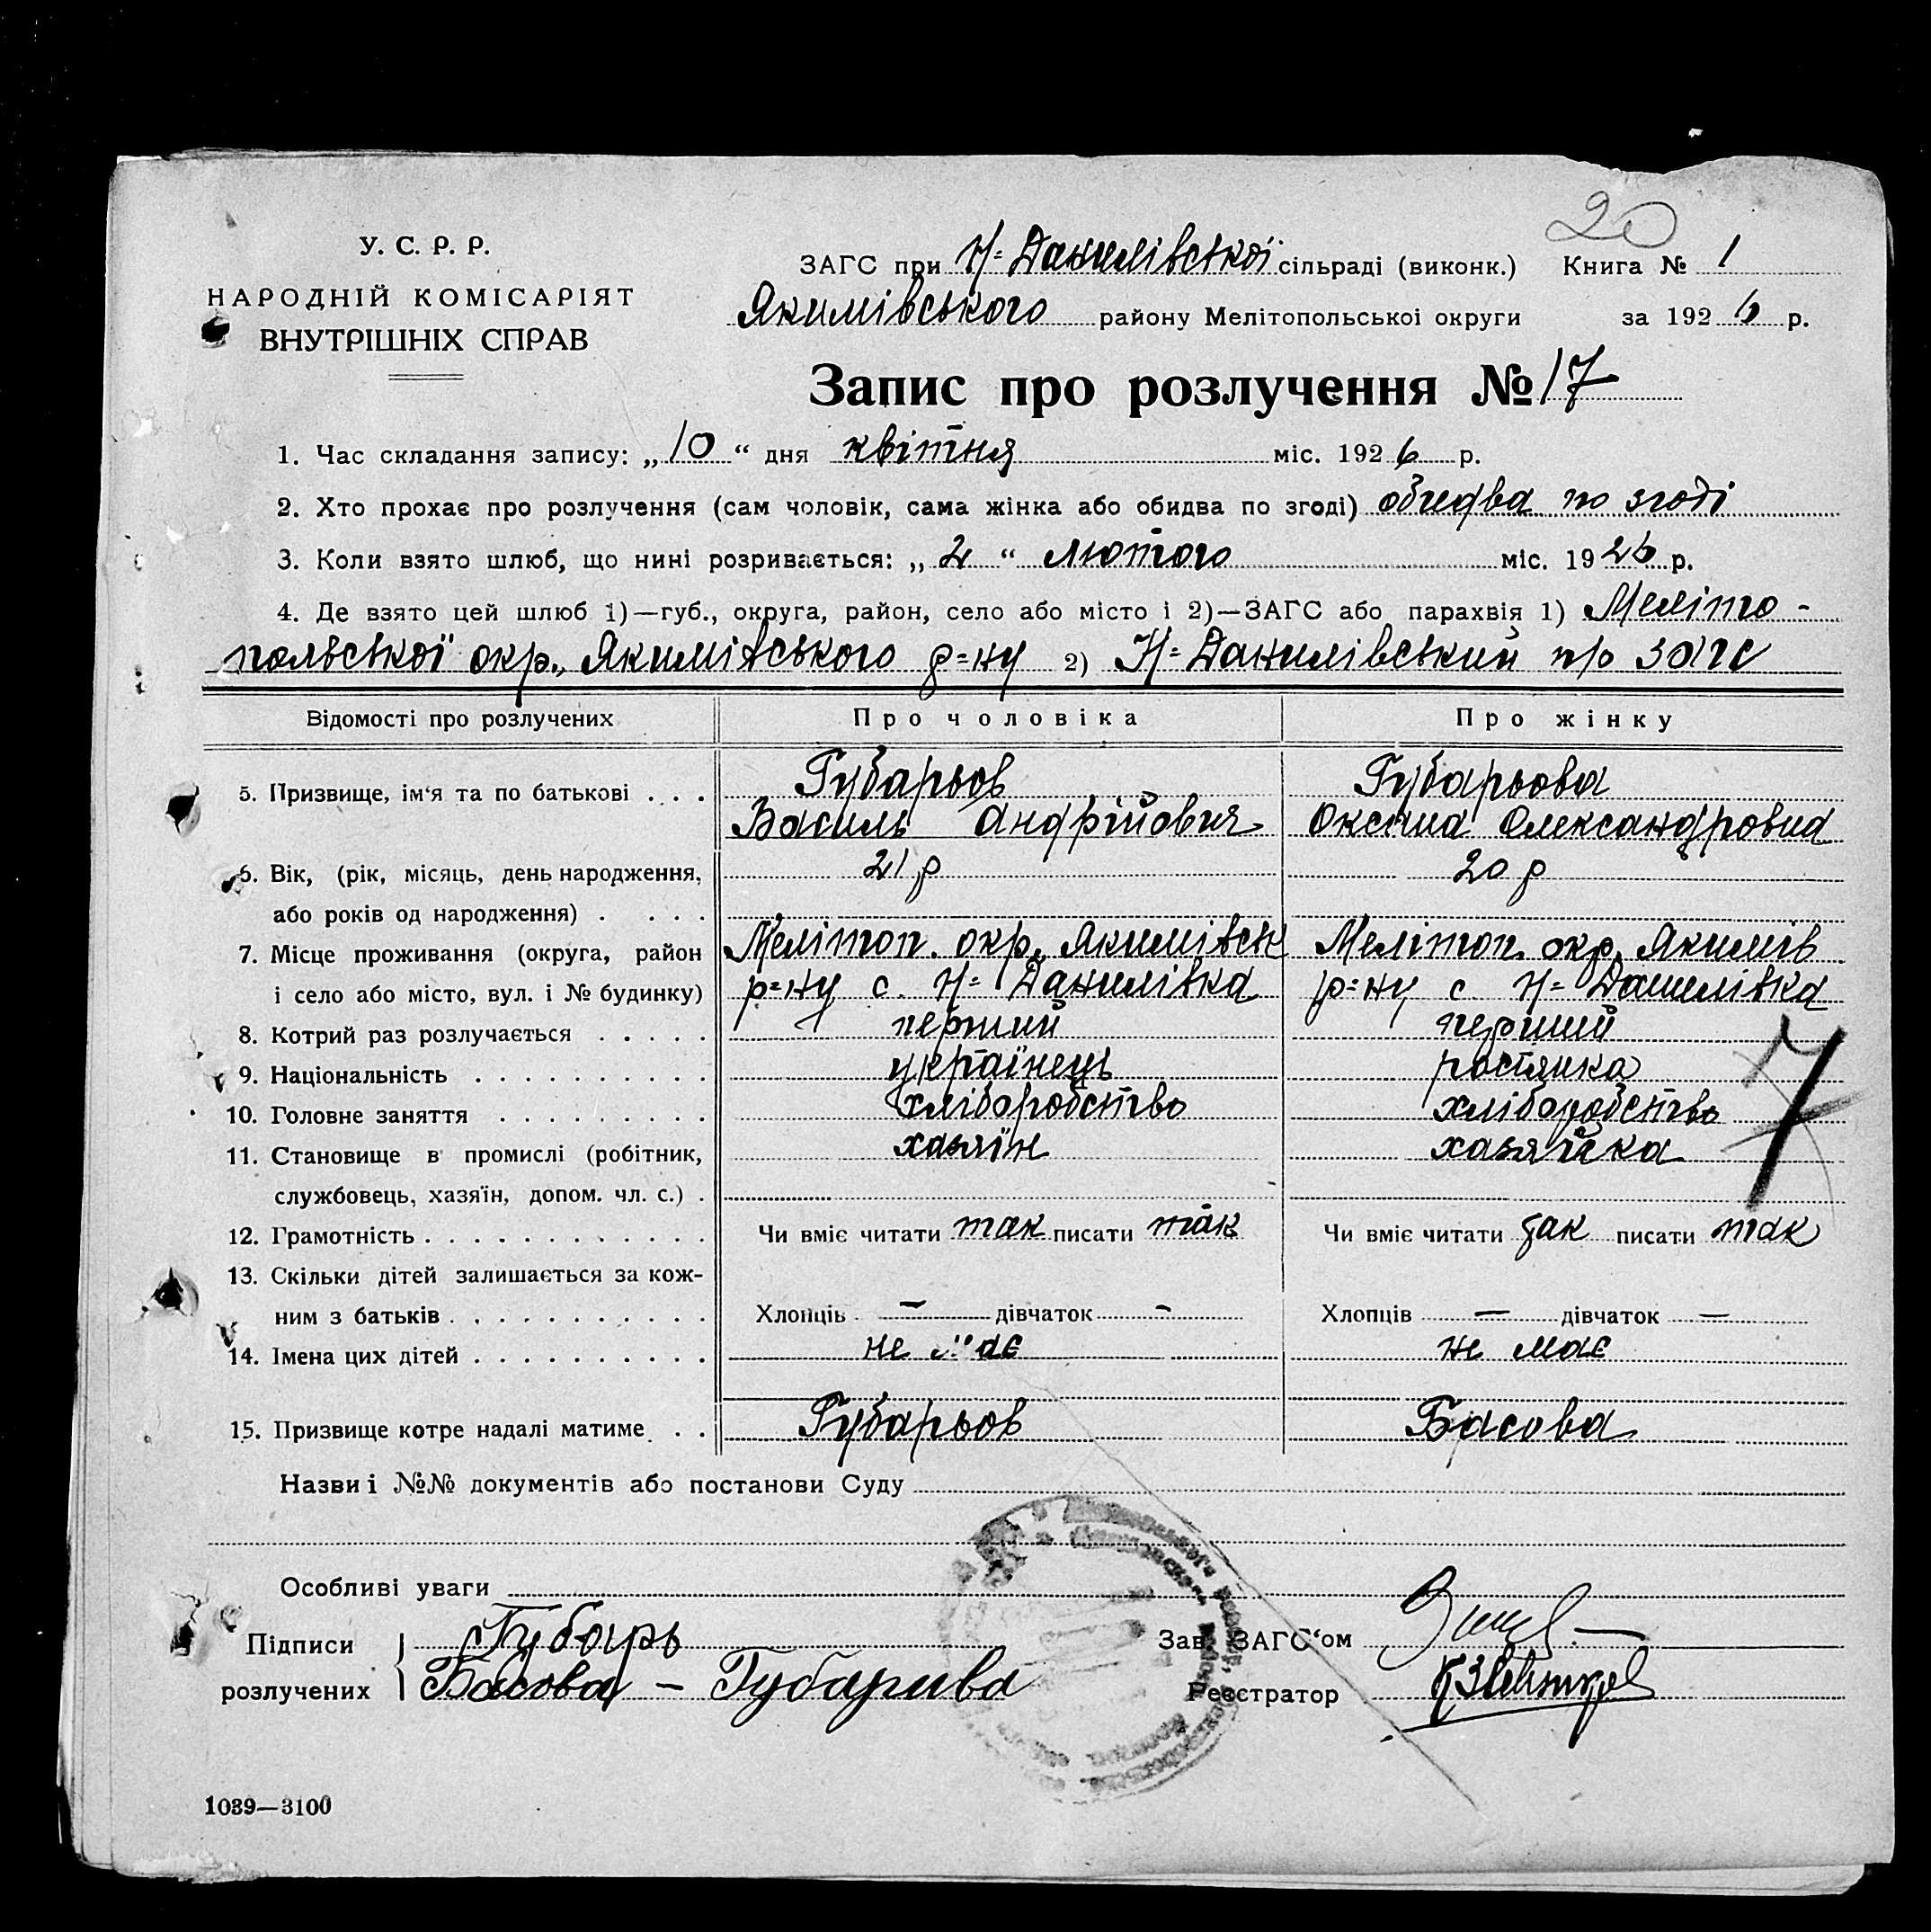 20
У. С. Р. Р.
НАРОДНІЙ КОМІСАРІЯТ
ВНУТРІШНІХ СПРАВ
ЗАГС при Н=Данилівської сільраді (виконк.) Книга № 1
Якимівського району Мелітопольської округи за 1926 р.
Запис про розлучення № 17
1. Час складання запису: „10“ дня квітня міс. 1926 р.
2. Хто прохає про розлучення (сам чоловік, сама жінка або обидва по згоді) обидва по згоді
3. Коли взято шлюб, що нині розривається: „2“ лютого міс. 1926 р.
4. Де взято цей шлюб 1)—губ., округа, район, село або місто і 2)—ЗАГС або парахвія 1) Меліто-
польської окр., Якимівського р=ну 2) Н=Данилівський п/р загс
Відомості про розлучених Про чоловіка Про жінку
5. Призвище, ім'я та по батькові . . . Губарьов Губарьова
Василь Андрійович Оксана Олександровна
6. Вік, (рік, місяць, день народження, 21 р 20 р
або років од народження) . . . .
7. Місце проживання (округа, район Меліто­п. окр., Якимівськ Мелітоп. окр. Якимів
і село або місто, вул. і № будинку) р=ну с. Н=Данилівка р=ну с. Н=Данилівка
8. Котрий раз розлучається . . . . . перший перший
9. Національність . . . . . . . . . . українець росіянка
10. Головне заняття . . . . . . . . . хліборобство хліборобство
11. Становище в промислі (робітник, хазяїн хазяйка
службовець, хазяїн, допом. чл. с.) .
12. Грамотність . . . . . . . . . . . . . Чи вміє читати так писати так Чи вміє читати так писати так
13. Скільки дітей залишається за кож-
ним з батьків . . . . . . . . . . . Хлопців — дівчаток — Хлопців — дівчаток —
14. Імена цих дітей . . . . . . . . . . не має не має
15. Призвище котре надалі матиме . . Губарьов Басова
Назви і №№ документів або постанови Суду
Особливі уваги
Підписи Губарь Зав. ЗАГС'ом
розлучених Басова – Губарива Реєстратор
7
1039—3100